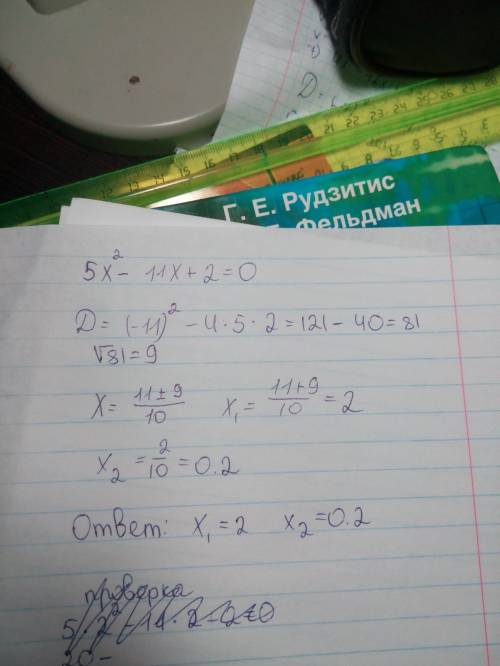 D=
Г. Е. Рудзитис
Фельдман
5x² - 11x + 2 = 0
D = (-11)² - 4 · 5 · 2 = 121 - 40 = 81
√81 = 9
x = 11±9/10 x₁ = 11+9/10 = 2
x₂ = 2/10 = 0.2
Ответ: x₁ = 2 x₂ = 0.2
проверка